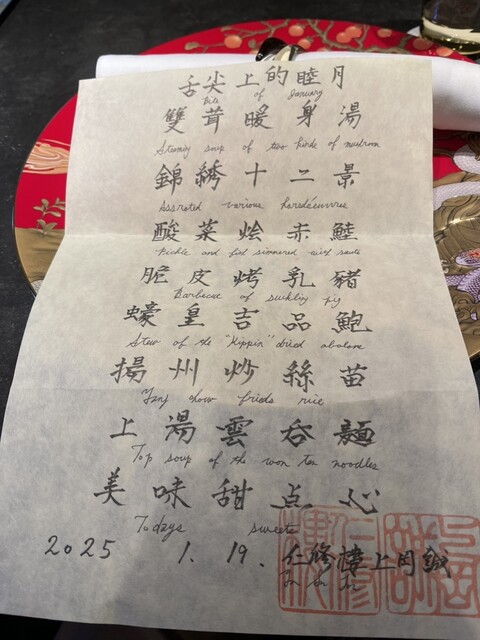 舌尖上的睦月
of January
雙茸暖身湯
Steamy soup of two kinds of mushroom
錦綉十二景
Assroted various horsdéeuvres
酸菜烩赤鯥
Pickle and simmered saute
脆皮烤乳豬
Barbecue of suckling pig
蠔皇吉品鮑
Stew of the "Kippin" dried abalone
揚州炒絲苗
Yang chow frieds rice
上湯雲吞麵
Top soup of the won ton noodles
美味甜点心
Todays sweets
2025 1. 19. 仁修樓上岡誠